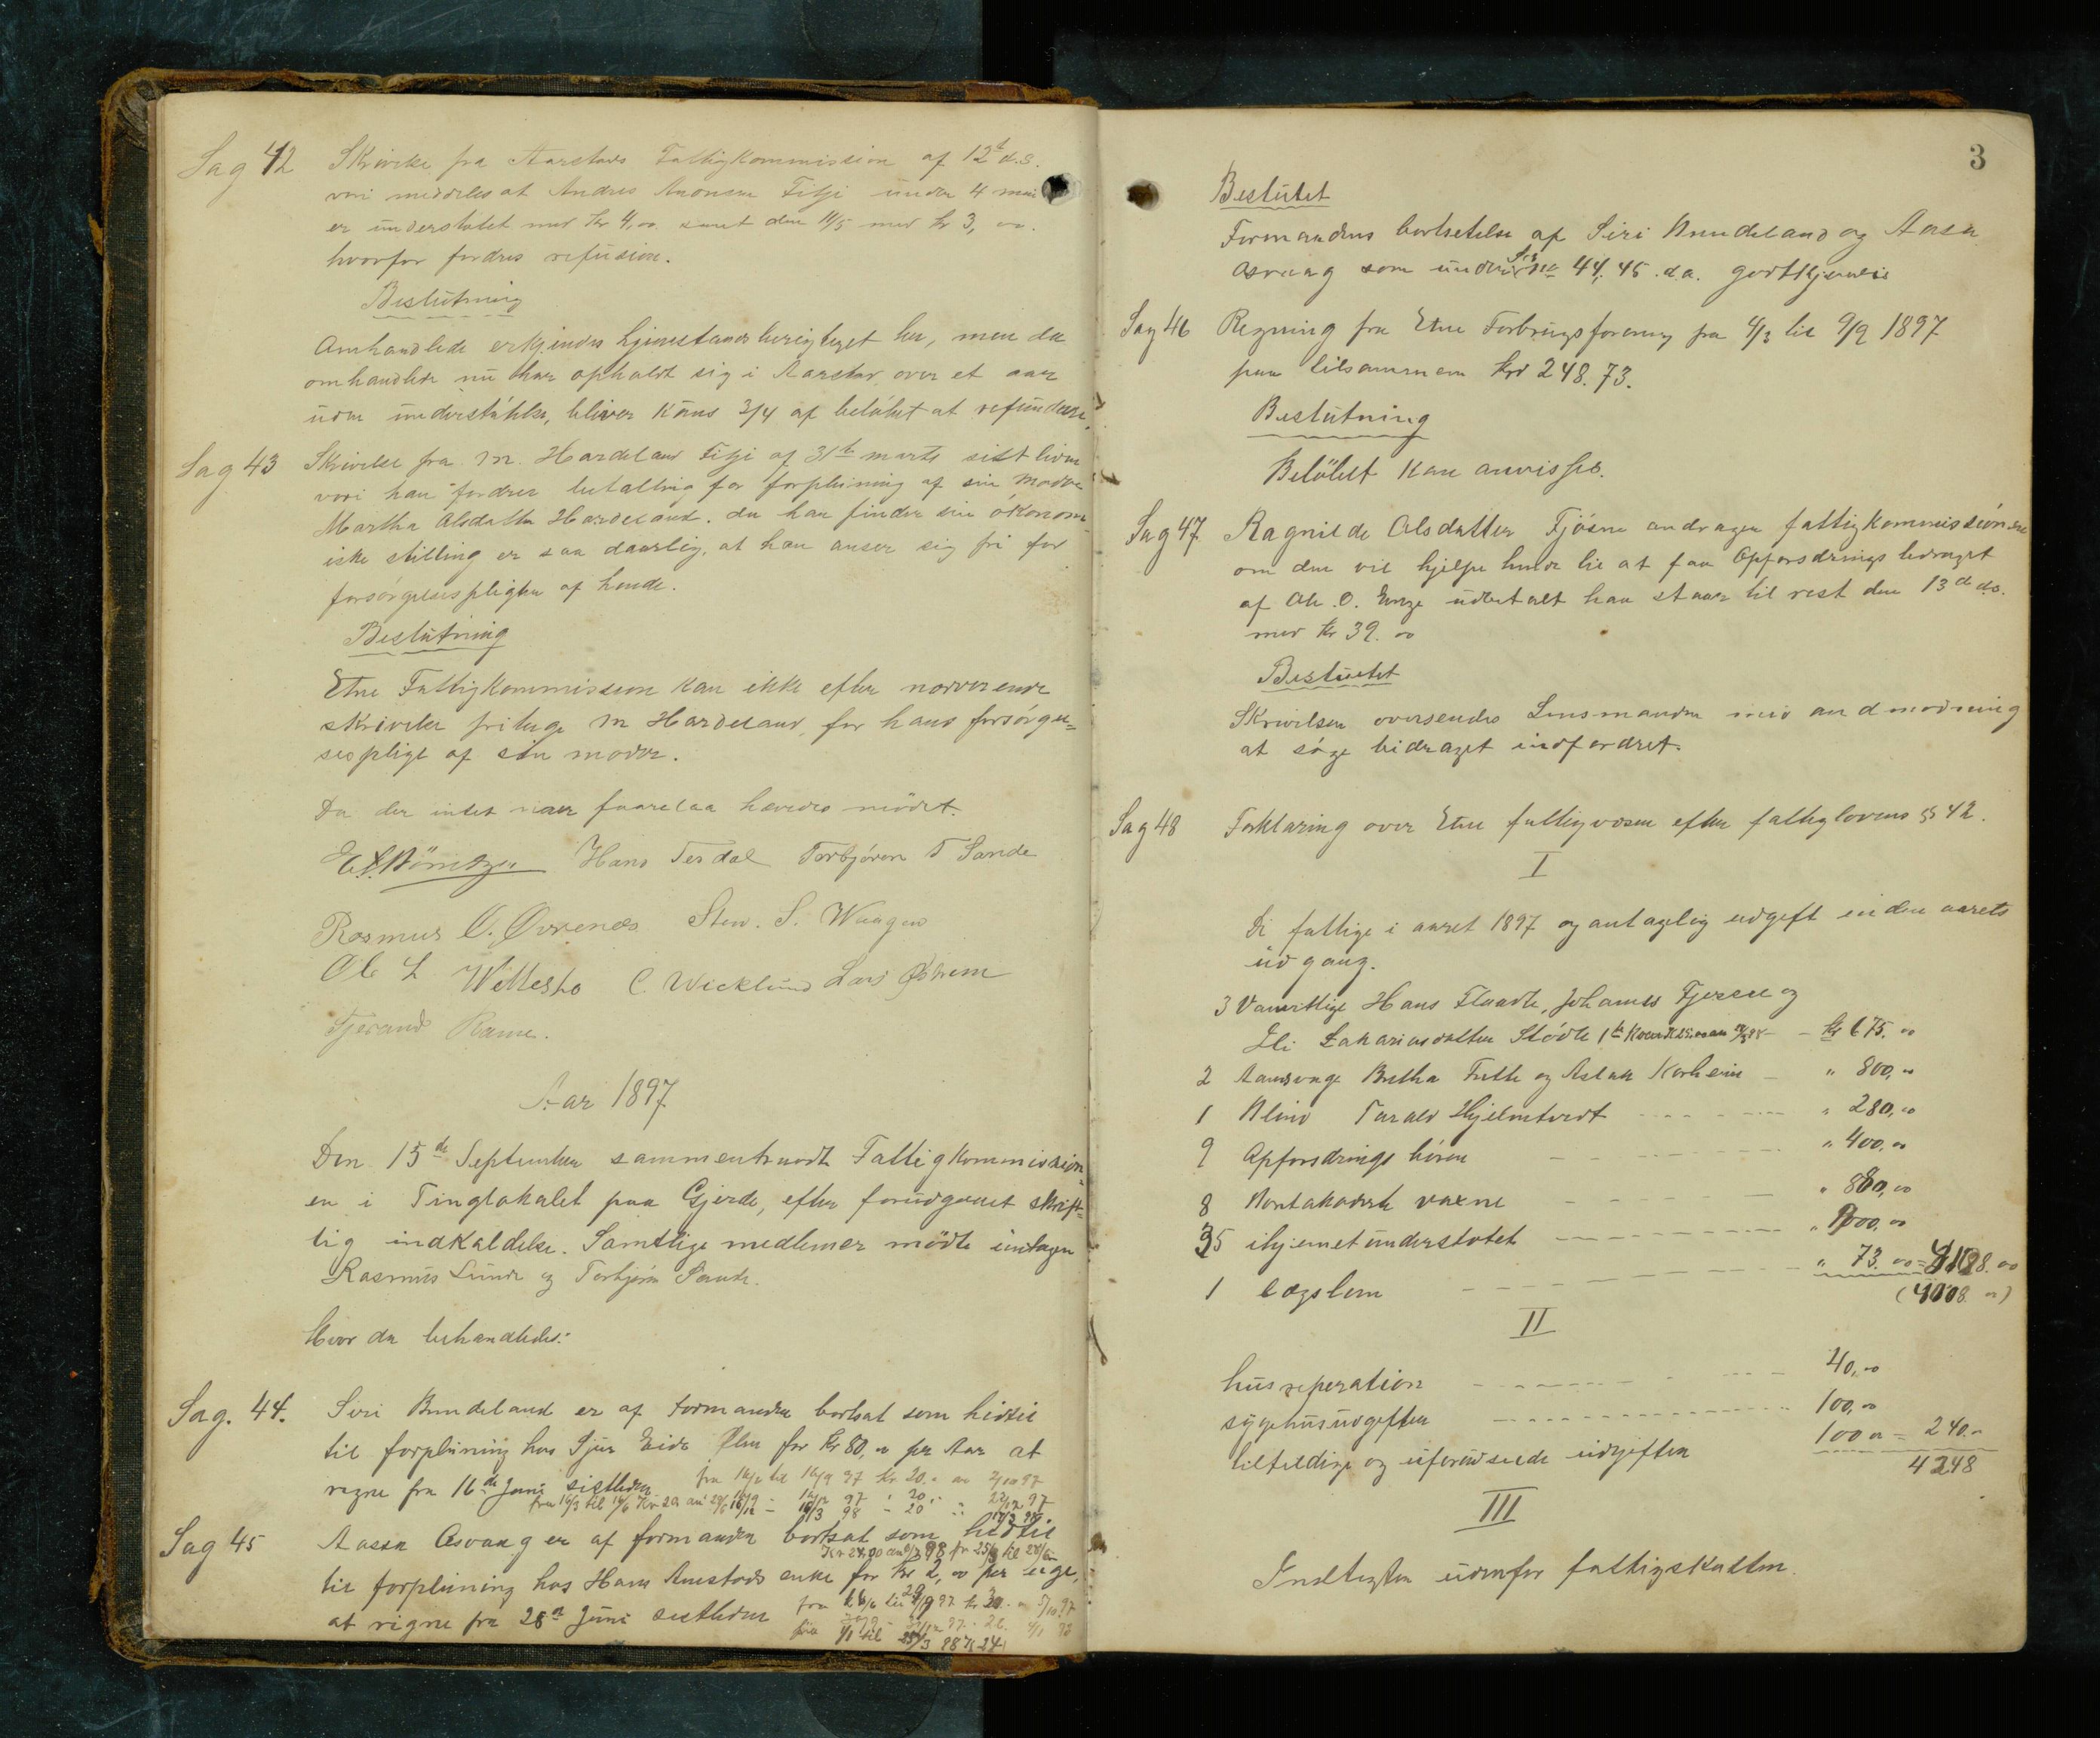 Sag 42 Skrivelse fra Aarstads Fattigkommission af 12te d.s.
vori meddeles at Andres Aronsen Fitji under 4 mai
er understøtet med Kr 4,00 samt den 11/5 med kr 3,00.
hvorfor fordres refusion.
Beslutning
Omhandlede erkjendes hjemstandsberigtiget her, men da
omhandlede nu har opholdt sig i Aarstad over et aar
uden understøttelse, bliver kuns 3/4 af beløbet at refundere.
Sag 43 Skrivelse fra M. Hardeland Fitji af 31te marts sistleden
vori han fordrer betalling for forpleining af sin moder
Martha Olsdatter Hardeland. da han finder sin økonom-
iske stilling er saa daarlig, at han anser sig fri for
forsørgelsespligten af hende.
Beslutning
Etne Fattigkommission kan ikke efter nærværende
skrivelse fritage M Hardeland for hans forsørgel=
sespligt af sin moder.
Da der intet mer forelaa hævedes mødet.
Hans Tesdal Torbjören T Sande
Rasmus O. Øvrenes Sten. S. Waagen
Ole L Wattesto C. Wicklund Lars Østrem
Tjerand Rame.
Aar 1897
Den 15de September sammentraadte Fattigkommission=
en i Tinglokalet paa Gjerde, efter forudgaaet skrift=
lig indkaldelse. Samtlige medlemer mødte undtagen
Rasmus Lunde og Torbjørn Sande.
Hvor da behandledes:
Sag. 44. Siri Bundeland er af Formanden bortsat som hidtil
til forpleining hos Sjur Eide Ølen for Kr 80,00 pr Aar at
regne fra 16de Juni sistleden fra 16/6 til 16/9 97 kr 20.00 an 2/10 97
fra 16/3 til 16/6 Kr 20 an 28/6 16/9 - 16/12 97 " 20,- 22/12 97
16/12 - 16/3 98 - 20 " 17/3 98.
Sag 45 Aasa Osvaag er af formanden bortsat som hidtil
Kr 24,00 98 fr 25/3 til
til forpleining hos Hans Amstads enke for Kr 2,00 per uge,
at rigne fra 28de Juni sistleden fra til 29/9 97 kr 5/10 97
30/9 - 31/12 97 - 26. 4/1 98
fra 1/1 til 25/3 98 K 24
3
Beslutet
Formandens bortsetelse af Siri Bundeland og Aasa
Osvaag som under Sag No 44, 45. d.a. godtkjendes
Sag 46 Regning fra Etne Forbrugsforening fra 4/3 til 9/9 1897
paa tilsammen Kr 248.73.
Beslutning
Beløbet kan anvisses.
Sag 47. Ragnilde Olsdatter Fjøsne andrager fattigkommissionen
om den vil hjelpe hende til at faa Opfostrings bedraget
af Ole. O. Enge udbetalt han staar til rest den 13de d.s.
med Kr 39.00
Beslutet
Skrivelsen oversendes Lensmanden med andmodning
at søge bidraget indfordret.
Sag 48 Forklaring over Etne fattigvæsen efter fattiglovens § 42.
I
De fattige i aaret 1897 og antagelig udgift inden aarets
udgang.
3 Vanvittige Hans Flaadte, Johannes Fjeren og
Eli Zakariasdatter Stödle - kr 675.00
2 Aandsvage Bretha Frette og Aslak Korheim " 800,00
1 Blind Tarald Hjelmtvedt " 280,00
9 Opfostrings børn " 400,00
8 Bortakorderte vaxne " 880,00
35 ihjemet understøtet " 1000.00
1 lægslem " 73.00 = 4108.00
(4008.00)
II
husreperation 40,00
sygehusudgifter 100,00
tilfeldige og uforudsede udgifter 100 00 = 240.-
4248
III
Indtegter udenfor fattigskatten.